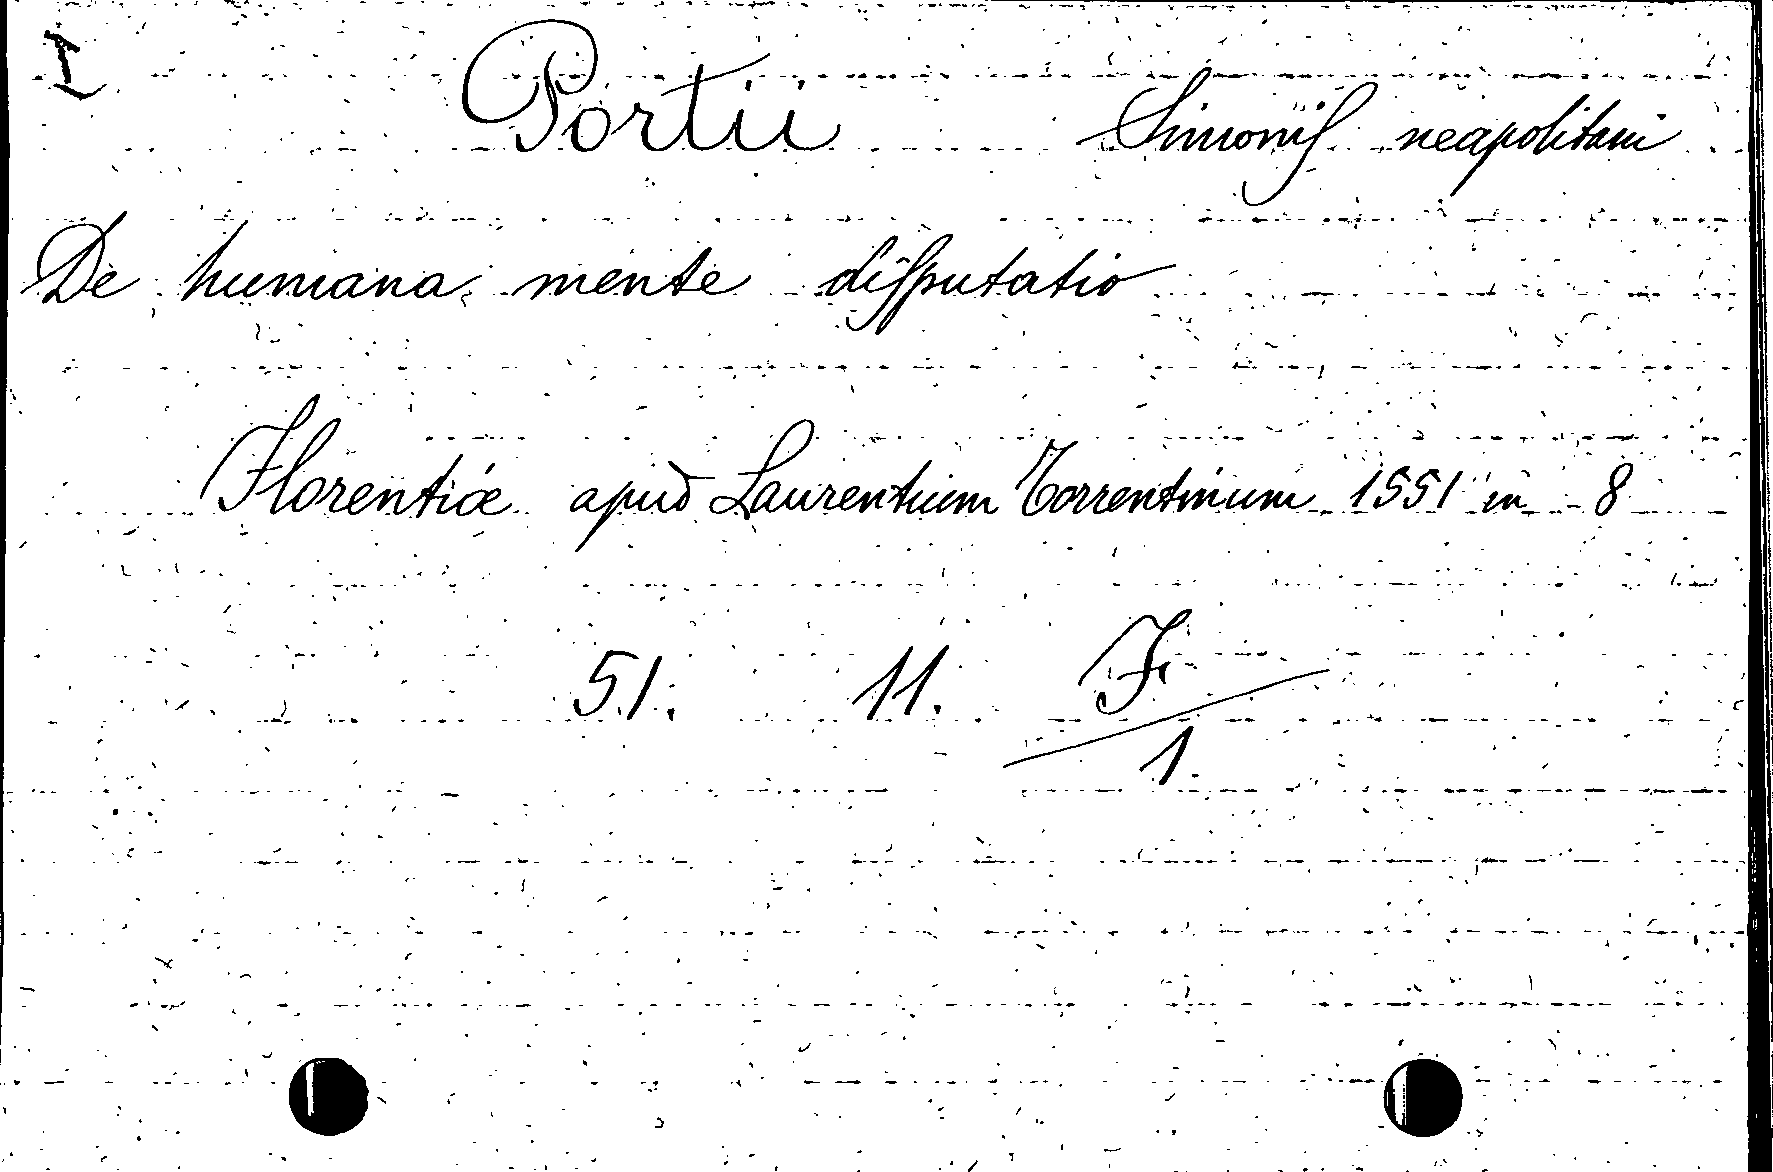 I
Portii Simonis neapolitani
De humana mente disputatio
Florentiæ apud Laurentium Torrentinum 1551 in 8
51. 11. F
1.